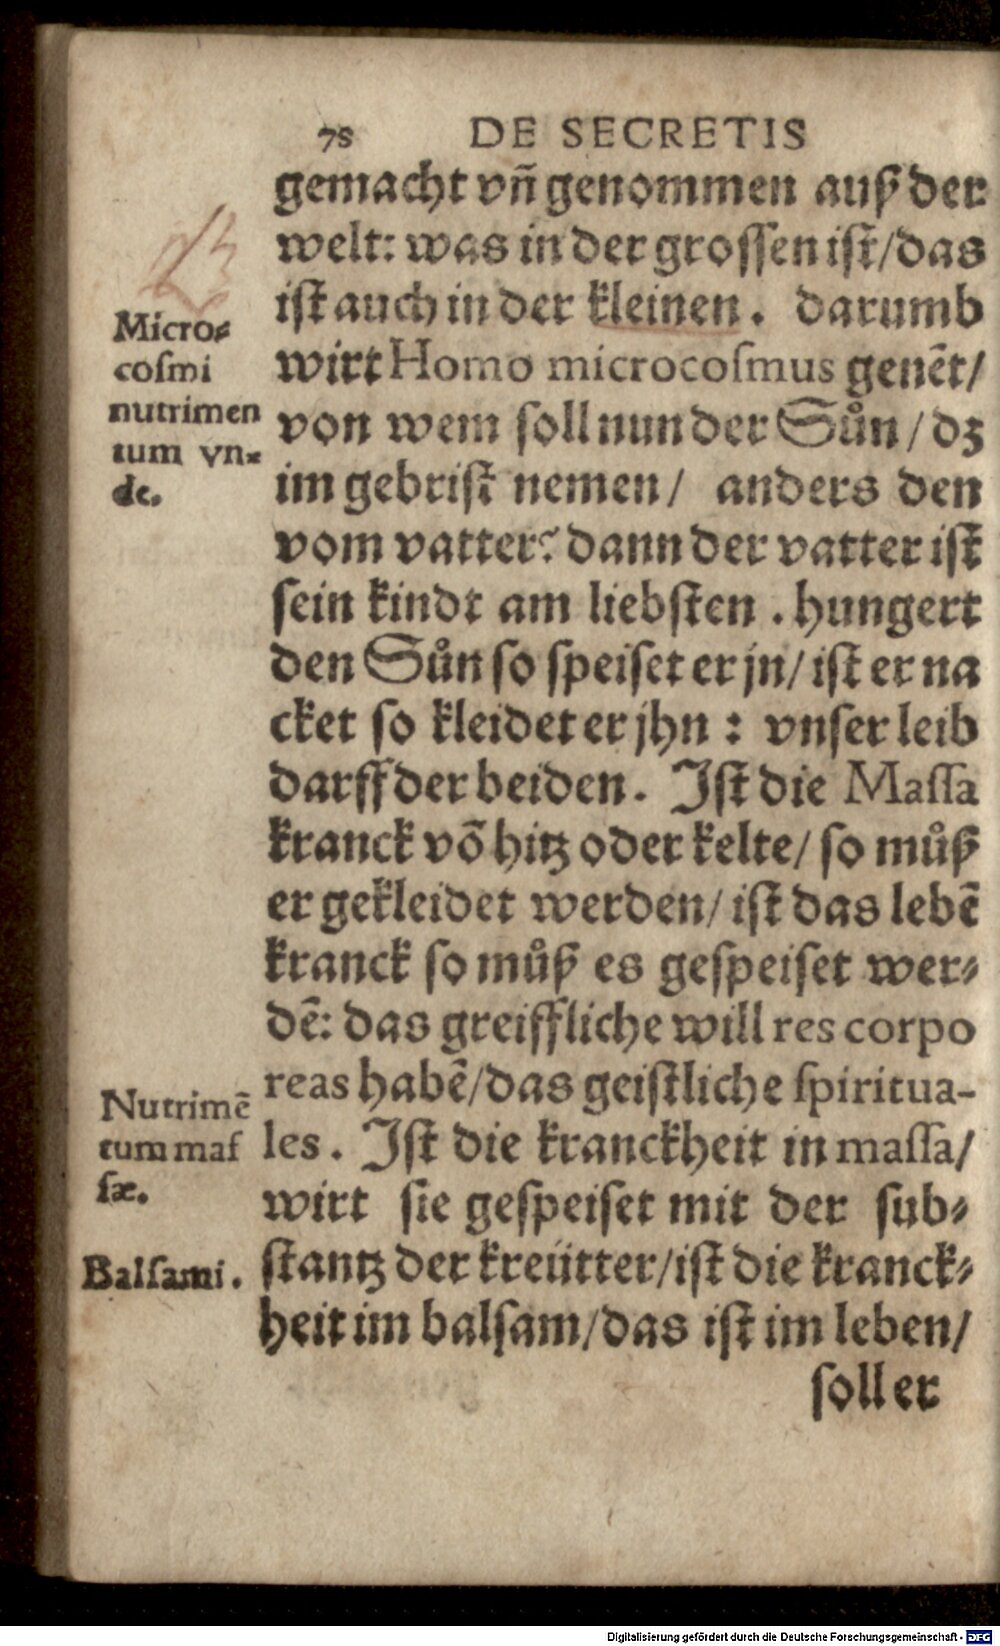 78 DE SECRETIS
gemacht vñ genommen auß der
welt: was in der grossen ist/das
ist auch in der kleinen. darumb
wirt Homo microcoſmus genēt/
von wem soll nun der Sůn/dz
im gebrist nemen/ anders den
vom vatter? dann der vatter ist
sein kindt am liebsten. hungert
den Sůn so speiset er jn/ist er na
cket so kleidet er jhn: vnser leib
darff der beiden. Ist die Maſſa
kranck vō hitz oder kelte/so můß
er gekleidet werden/ist das lebē
kranck so můß es gespeiset wer⸗
dē: das greiffliche will res corpo
reas habē/das geistliche ſpiritua-
les. Ist die kranckheit in maſſa/
wirt sie gespeiset mit der sub⸗
stantz der kreütter/ist die kranck⸗
heit im balsam/das ist im leben/
soll er
Micro⸗
coſmi
nutrimen
tum vn⸗
de.
Nutrimē
tum maſ
ſæ.
Balſami.
Digitalisierung gefördert durch die Deutsche Forschungsgemeinschaft - DFG